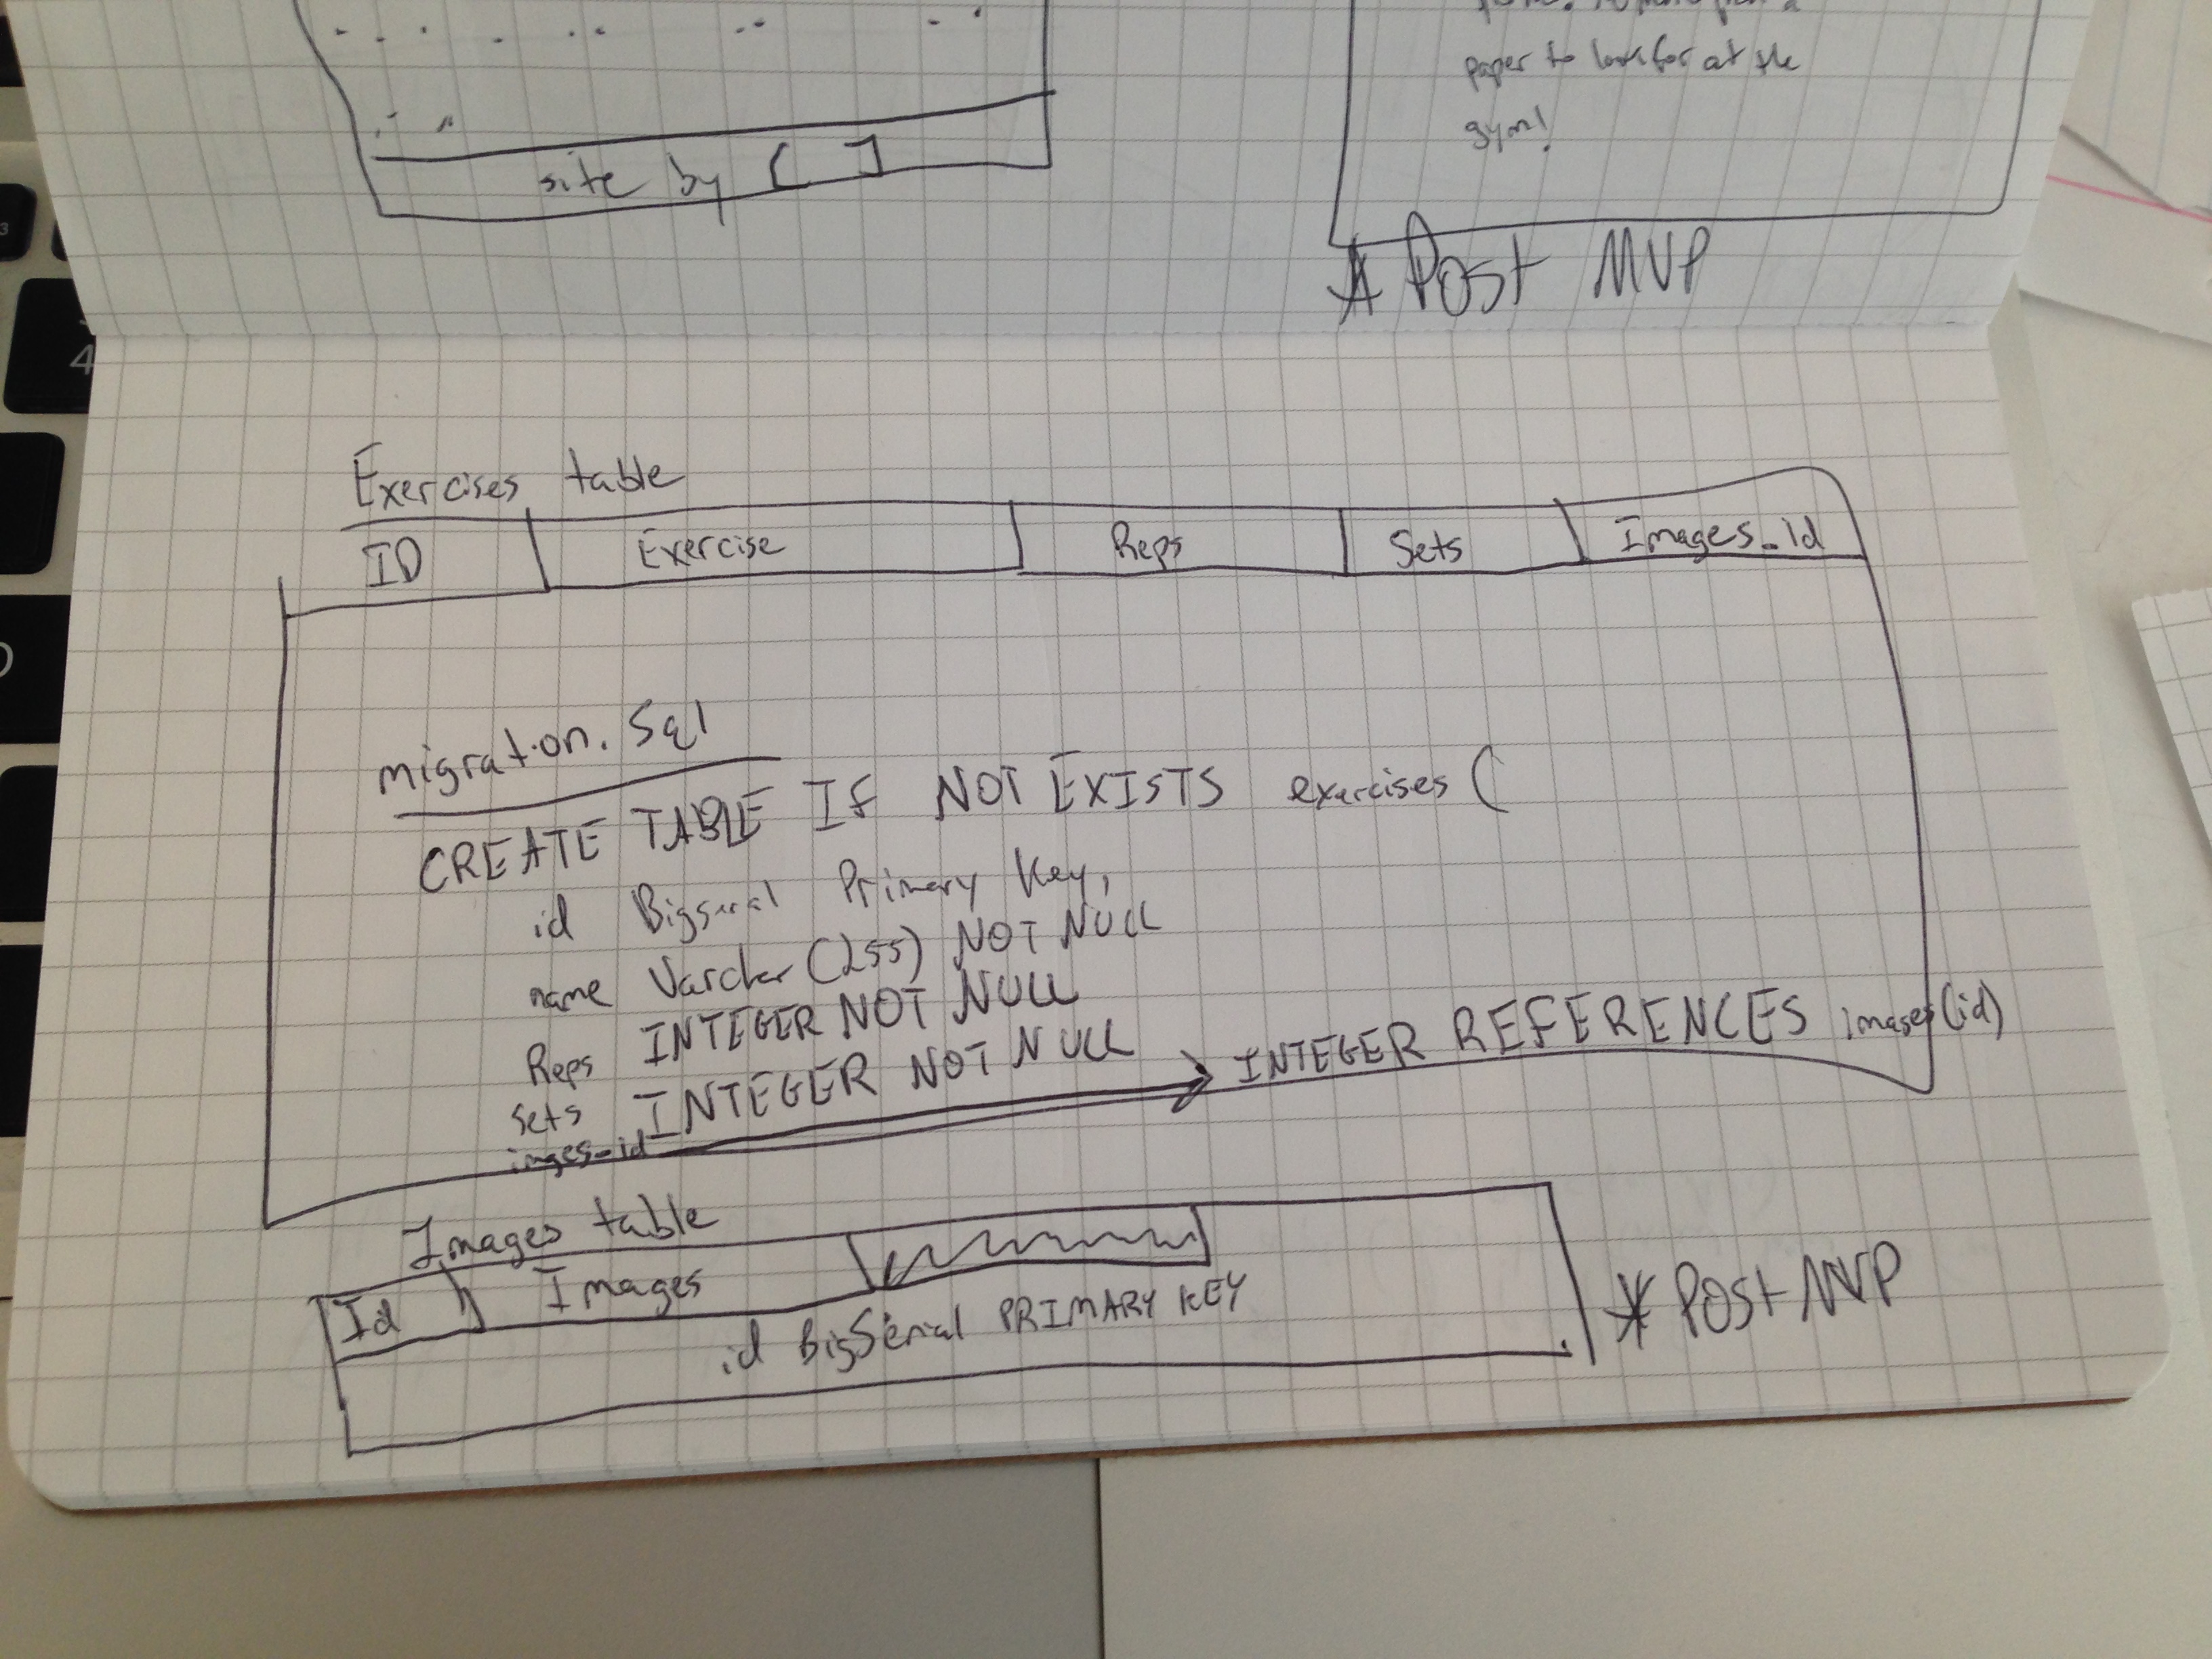 paper to look for at the
gym!
site by [ ]
* Post MVP
Exercises table
ID Exercise Reps Sets Images_id
migration.sql
CREATE TABLE IF NOT EXISTS exercises (
id Bigserial Primary Key,
name Varchar (255) NOT NULL
Reps INTEGER NOT NULL
Sets INTEGER NOT NULL
images_id INTEGER REFERENCES images(id)
Images table
Id Images
id BigSerial PRIMARY KEY
* Post MVP